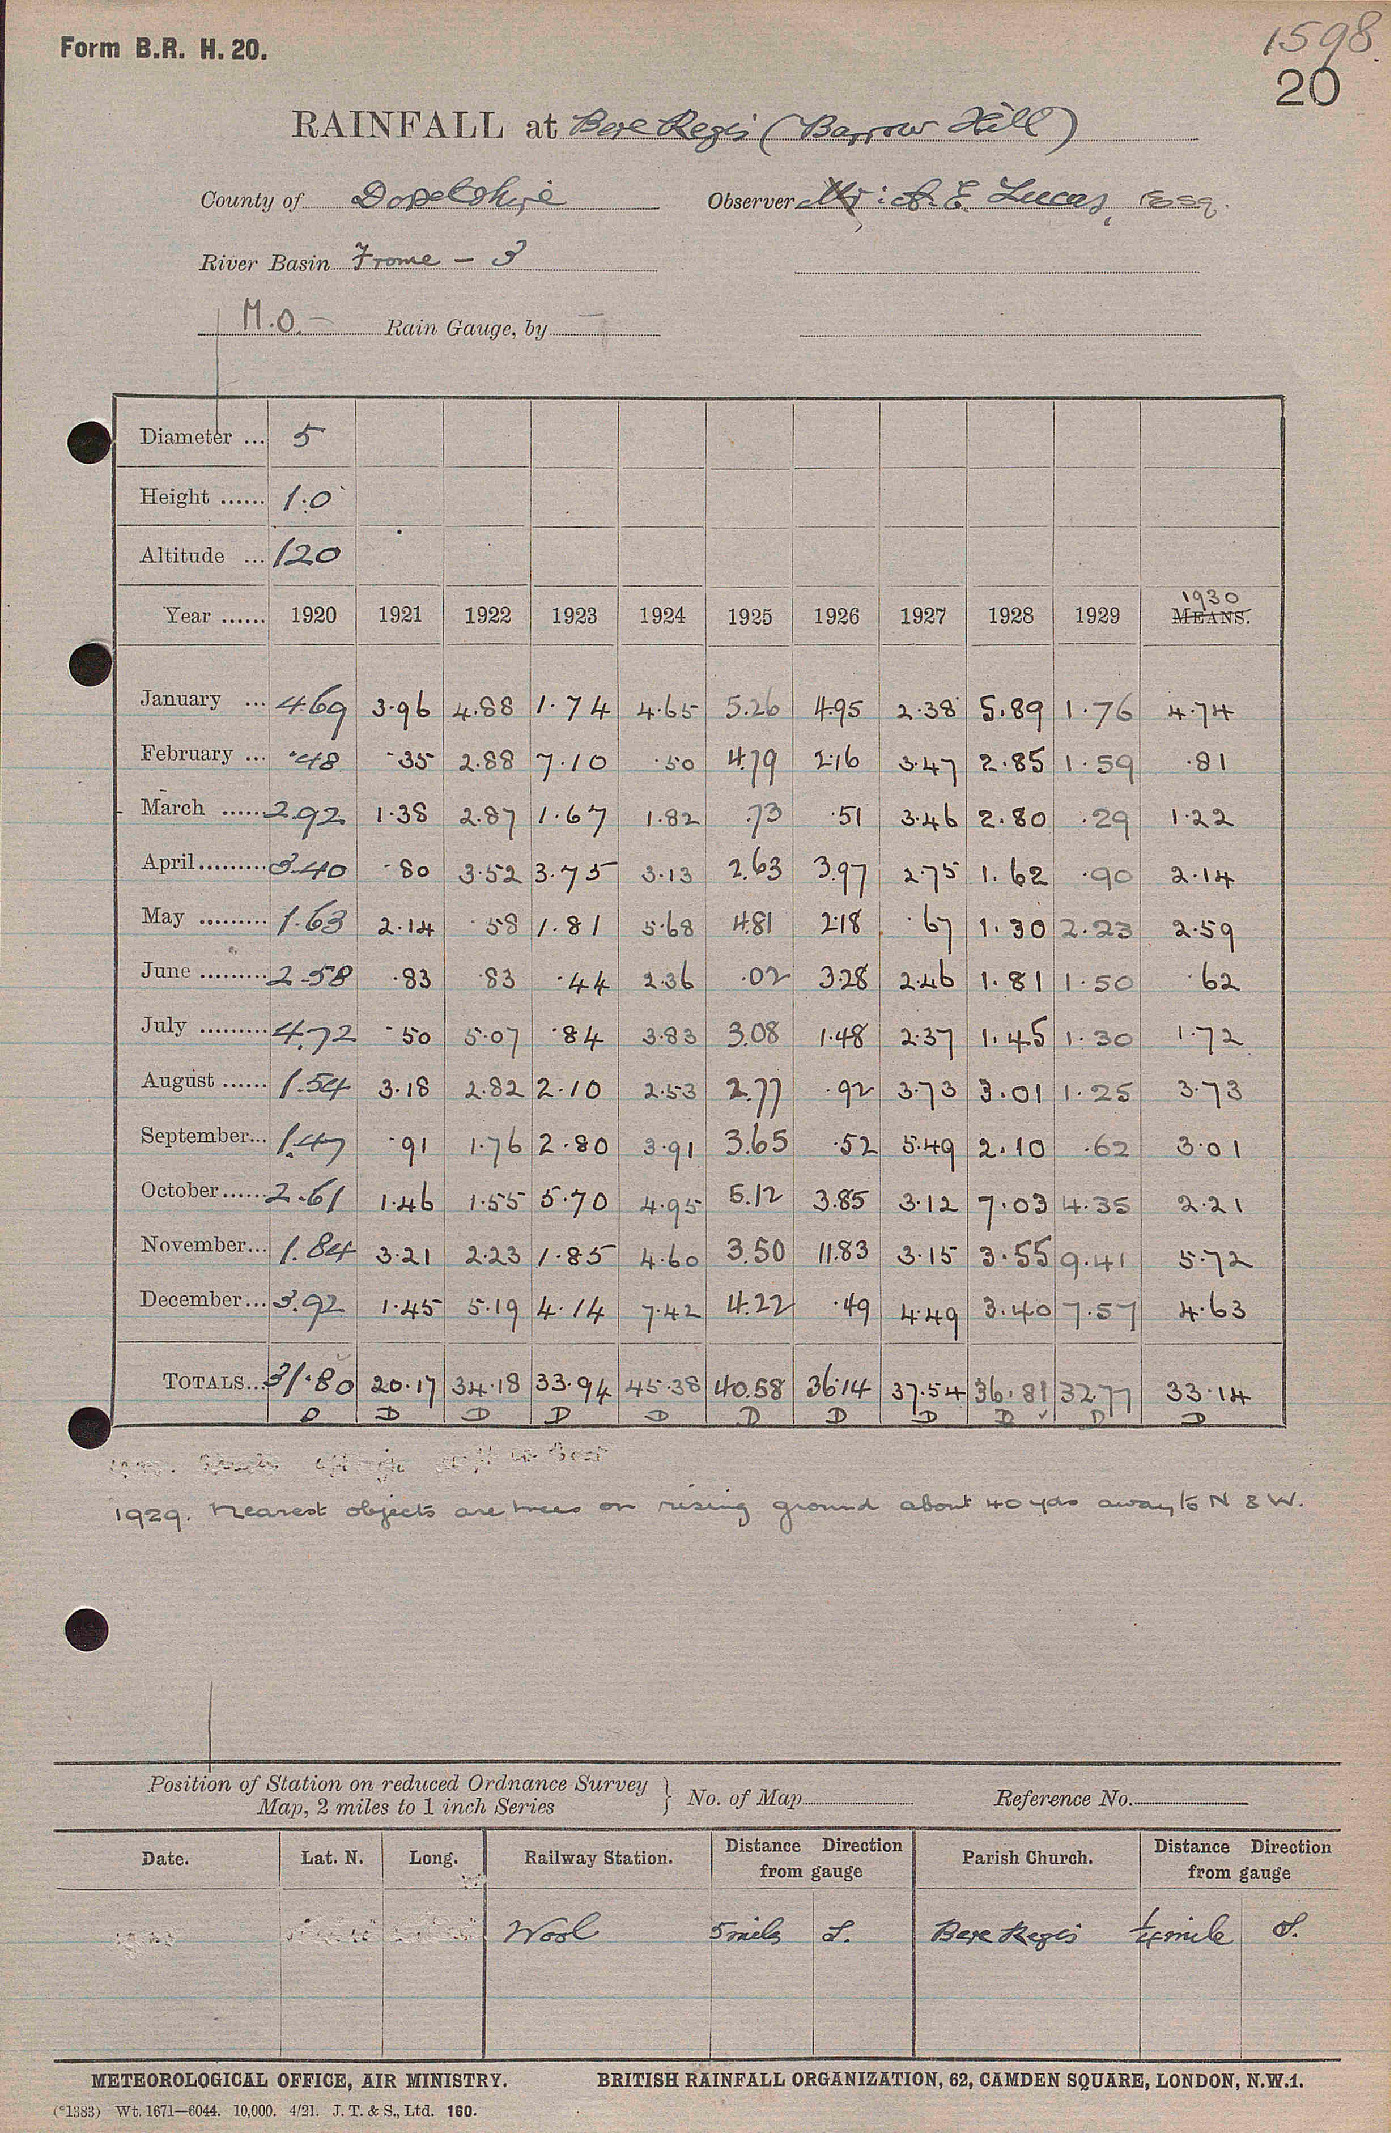 Form B.R. H. 20.
1598.
20
RAINFALL at Bere Regis (Barrow Hill)
County of Dorsetshire Observer Mr: A. E. Lucas, Esq.
River Basin Frome - 3
M.O. - Rain Gauge, by -
Diameter ... 5
Height ...... 1.0
Altitude ... 120
Year ...... 1920 1921 1922 1923 1924 1925 1926 1927 1928 1929 1930 MEANS.
January ... 4.69 3.96 4.88 1.74 4.65 5.26 4.95 2.38 5.89 1.76 4.74
February ... .48 .35 2.88 7.10 .50 4.79 2.16 3.47 2.85 1.59 .81
March ...... 2.92 1.38 2.87 1.67 1.82 .73 .51 3.46 2.80 .29 1.22
April ......... 3.40 .80 3.52 3.75 3.13 2.63 3.97 2.75 1.62 .90 2.14
May ......... 1.63 2.14 .58 1.81 5.68 4.81 2.18 .67 1.30 2.23 2.59
June ......... 2.58 .83 .83 .44 2.36 .02 3.28 2.46 1.81 1.50 .62
July ......... 4.72 .50 5.07 .84 3.83 3.08 1.48 2.37 1.45 1.30 1.72
August ...... 1.54 3.18 2.82 2.10 2.53 2.77 .92 3.73 3.01 1.25 3.73
September... 1.47 .91 1.76 2.80 3.91 3.65 .52 5.49 2.10 .62 3.01
October...... 2.61 1.46 1.55 5.70 4.95 5.12 3.85 3.12 7.03 4.35 2.21
November... 1.84 3.21 2.23 1.85 4.60 3.50 11.83 3.15 3.55 9.41 5.72
December... 3.92 1.45 5.19 4.14 7.42 4.22 .49 4.49 3.40 7.57 4.63
TOTALS... 31.80 20.17 34.18 33.94 45.38 40.58 36.14 37.54 36.81 32.77 33.14
D D D D D D D D D ✓ D D
1929. Nearest objects are trees on rising ground about 40 yds away to N & W.
Position of Station on reduced Ordnance Survey
Map, 2 miles to 1 inch Series } No. of Map Reference No.
Date. Lat. N. Long. Railway Station. Distance Direction from gauge Parish Church. Distance Direction from gauge
Wool 5 miles S. Bere Regis 1/4 mile S.
METEOROLOGICAL OFFICE, AIR MINISTRY. BRITISH RAINFALL ORGANIZATION, 62, CAMDEN SQUARE, LONDON, N.W.1.
(*1383) Wt. 1671—6044. 10,000. 4/21. J. T. & S., Ltd. 160.